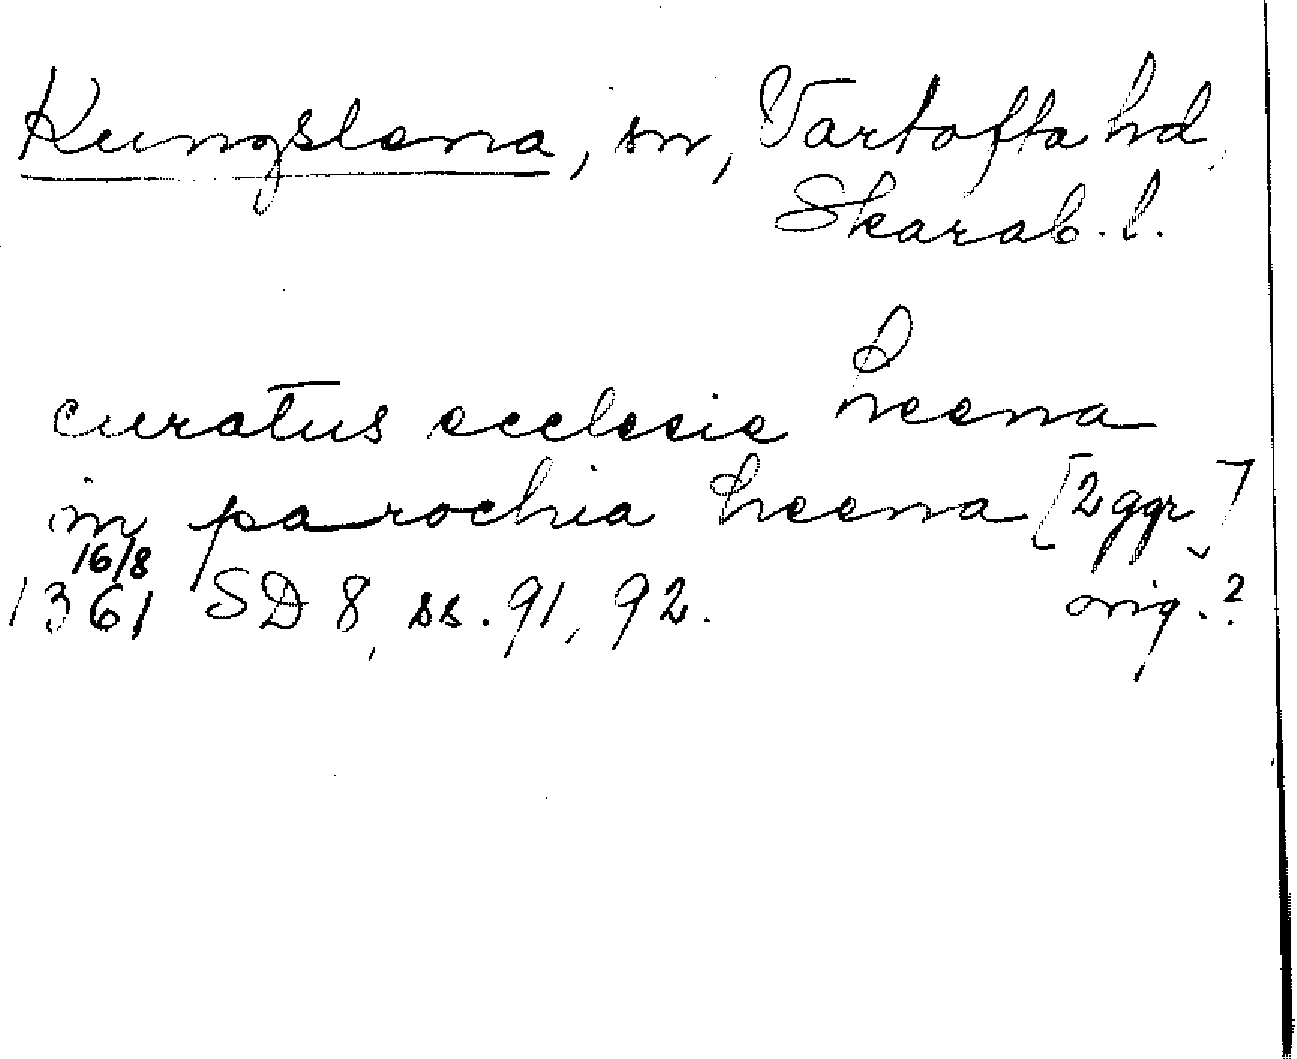 Kungslena, sn, Vartofta hd,
Skarab. l.
curatus ecclesie Leena
in parochia Leena [2 ggr]
16/8
1361 SD 8, ss. 91, 92. orig.?